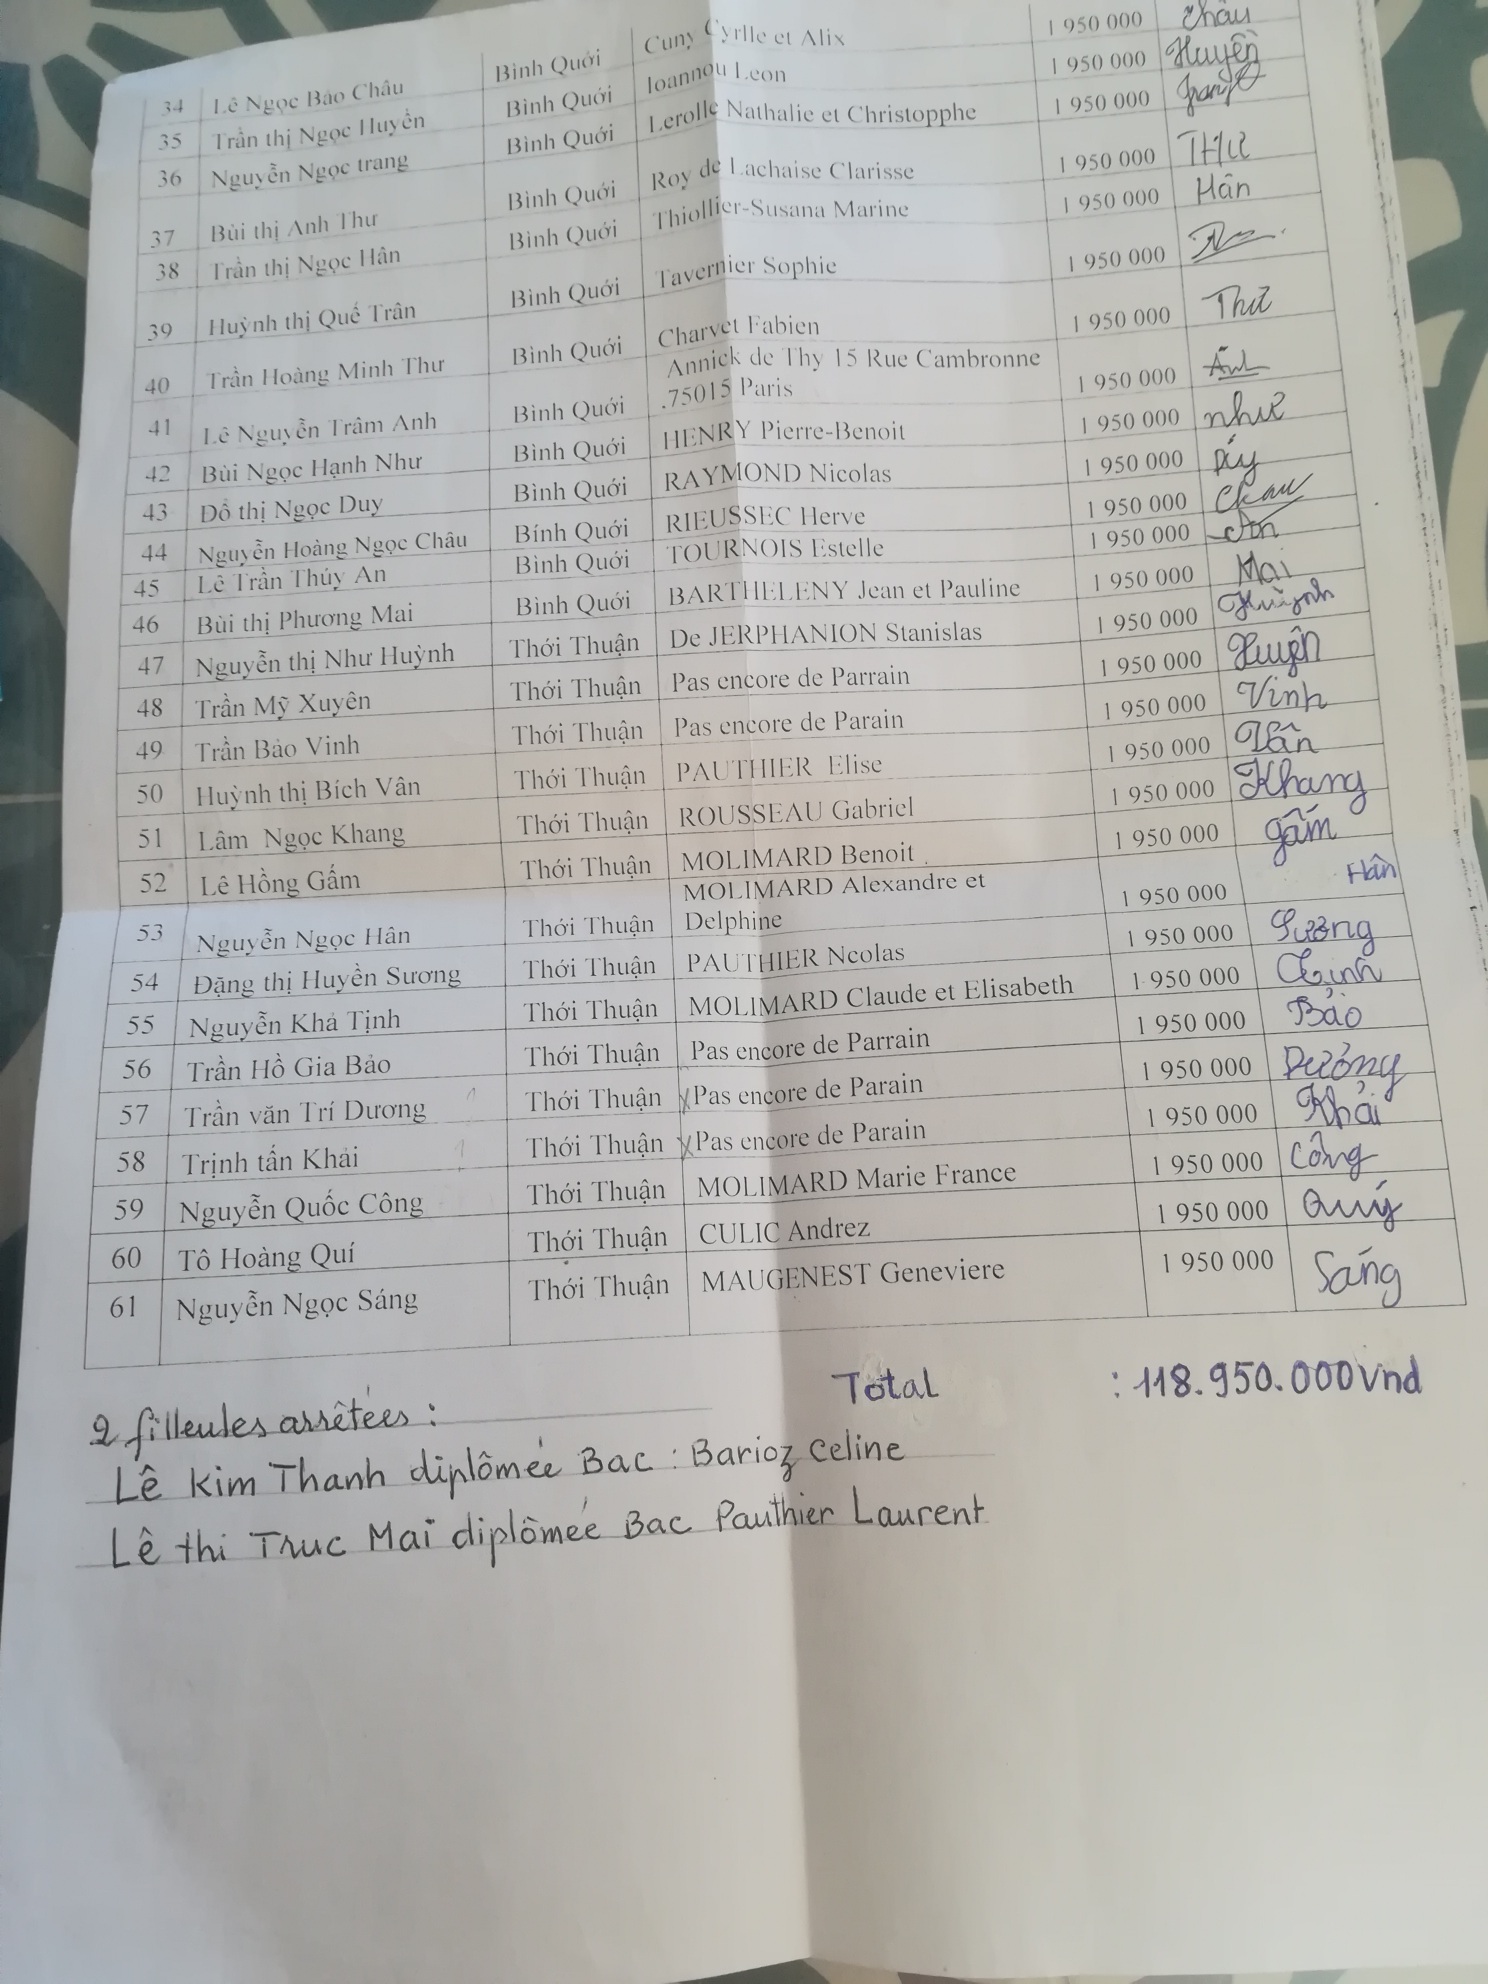 34 Lê Ngọc Bảo Châu Bình Quới Cuny Cyrlle et Alix 1 950 000 Châu
35 Trần thị Ngọc Huyền Bình Quới Ioannou Leon 1 950 000 Huyền
36 Nguyễn Ngọc trang Bình Quới Lerolle Nathalie et Christopphe 1 950 000 Trang
37 Bùi thị Anh Thư Bình Quới Roy de Lachaise Clarisse 1 950 000 THƯ
38 Trần thị Ngọc Hân Bình Quới Thiollier-Susana Marine 1 950 000 Hân
39 Huỳnh thị Quế Trân Bình Quới Tavernier Sophie 1 950 000
40 Trần Hoàng Minh Thư Bình Quới Charvet Fabien 1 950 000 Thư
41 Lê Nguyễn Trâm Anh Bình Quới Annick de Thy 15 Rue Cambronne 1 950 000 Anh
.75015 Paris
42 Bùi Ngọc Hạnh Như Bình Quới HENRY Pierre-Benoit 1 950 000 như
43 Đỗ thị Ngọc Duy Bình Quới RAYMOND Nicolas 1 950 000 Duy
44 Nguyễn Hoàng Ngọc Châu Bính Quới RIEUSSEC Herve 1 950 000 Chau
45 Lê Trần Thúy An Bình Quới TOURNOIS Estelle 1 950 000
46 Bùi thị Phương Mai Bình Quới BARTHELENY Jean et Pauline 1 950 000 Mai
47 Nguyễn thị Như Huỳnh Thới Thuận De JERPHANION Stanislas 1 950 000 Huỳnh
48 Trần Mỹ Xuyên Thới Thuận Pas encore de Parrain 1 950 000 Xuyên
49 Trần Bảo Vinh Thới Thuận Pas encore de Parain 1 950 000 Vinh
50 Huỳnh thị Bích Vân Thới Thuận PAUTHIER Elise 1 950 000 Vân
51 Lâm Ngọc Khang Thới Thuận ROUSSEAU Gabriel 1 950 000 Khang
52 Lê Hồng Gấm Thới Thuận MOLIMARD Benoit 1 950 000 gấm
53 Nguyễn Ngọc Hân Thới Thuận MOLIMARD Alexandre et 1 950 000 Hân
Delphine
54 Đặng thị Huyền Sương Thới Thuận PAUTHIER Ncolas 1 950 000 Sương
55 Nguyễn Khả Tịnh Thới Thuận MOLIMARD Claude et Elisabeth 1 950 000 Tịnh
56 Trần Hồ Gia Bảo Thới Thuận Pas encore de Parrain 1 950 000 Bảo
57 Trần văn Trí Dương Thới Thuận Pas encore de Parain 1 950 000 Dương
58 Trịnh tấn Khải Thới Thuận Pas encore de Parain 1 950 000 Khải
59 Nguyễn Quốc Công Thới Thuận MOLIMARD Marie France 1 950 000 Công
60 Tô Hoàng Quí Thới Thuận CULIC Andrez 1 950 000 Quý
61 Nguyễn Ngọc Sáng Thới Thuận MAUGENEST Geneviere 1 950 000 Sáng
Total : 118.950.000vnd
2 filleules arrêtées :
Lê Kim Thanh diplômée Bac : Barioz Celine
Lê thi Truc Mai diplômée Bac Pauthier Laurent